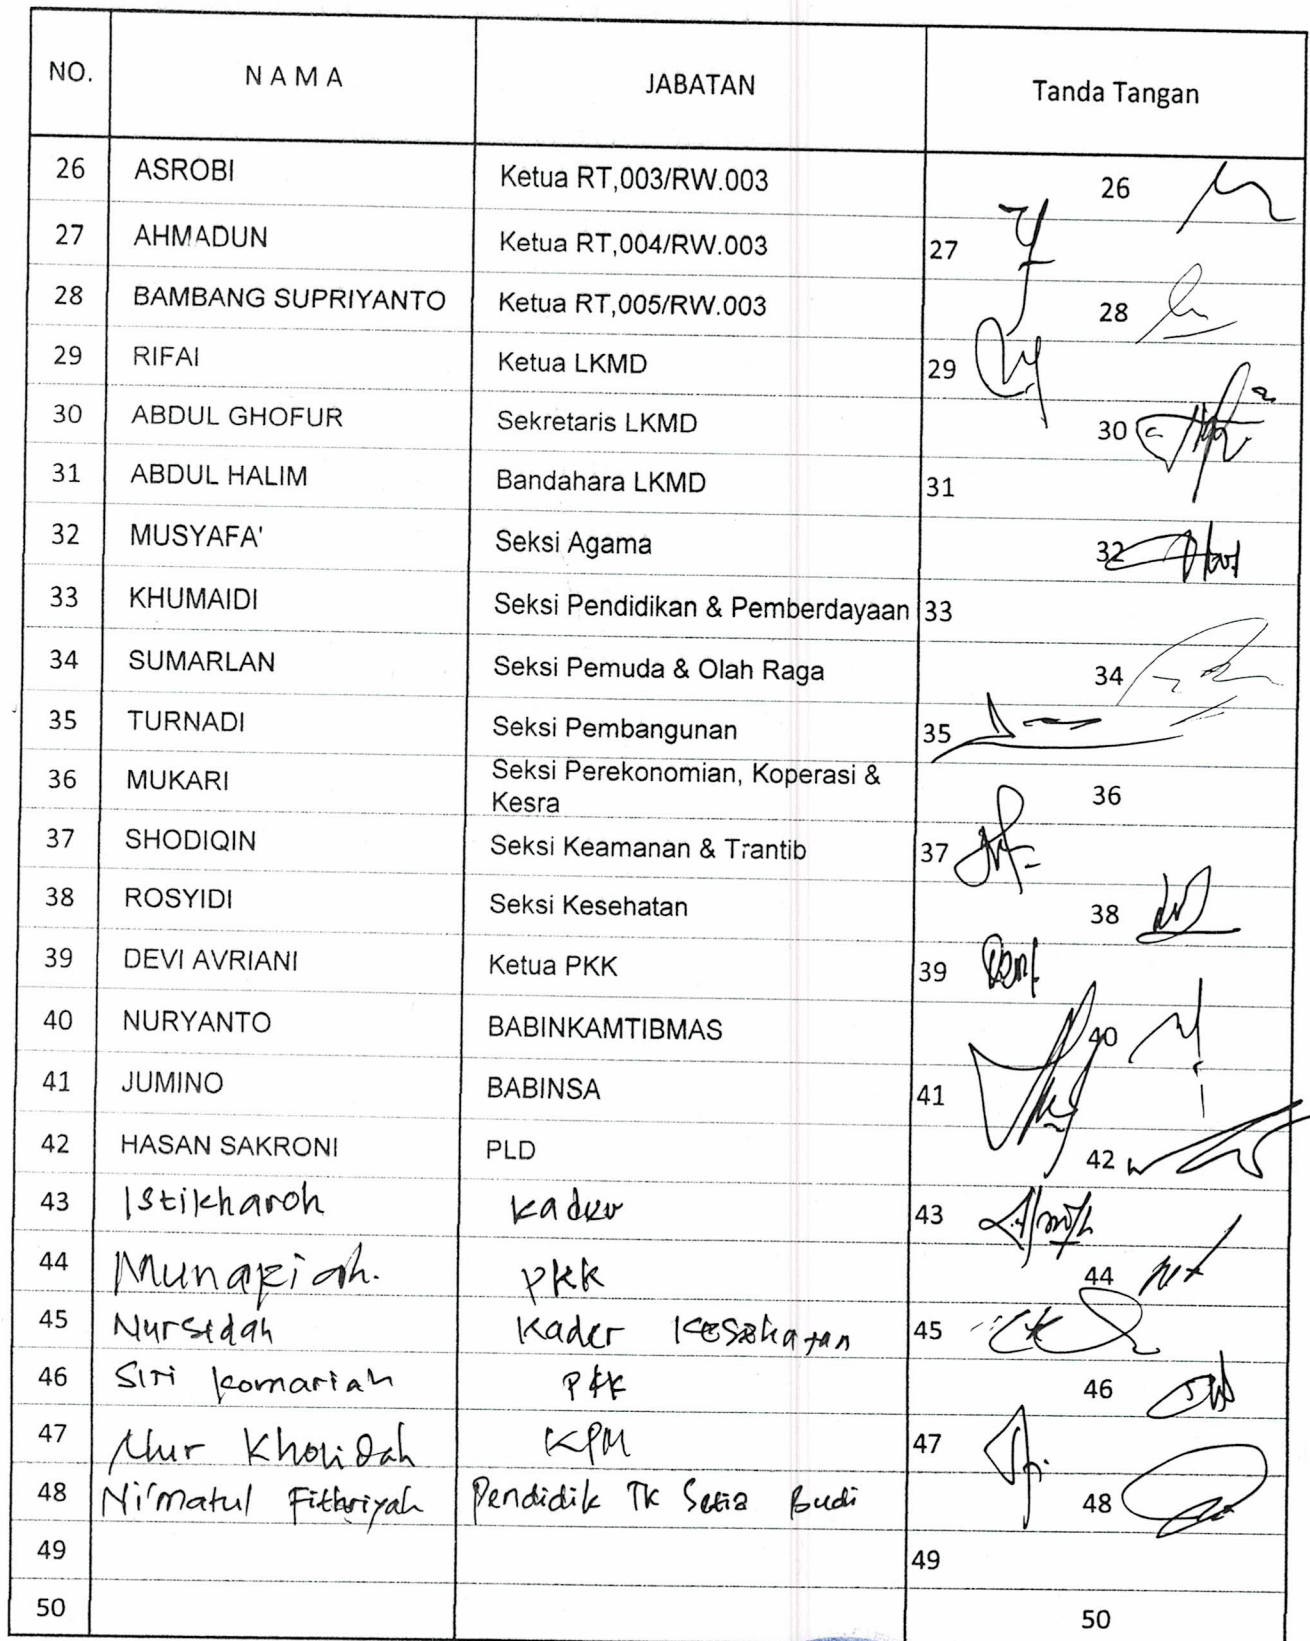 NO. N A M A JABATAN Tanda Tangan
26 ASROBI Ketua RT,003/RW.003 26
27 AHMADUN Ketua RT,004/RW.003 27
28 BAMBANG SUPRIYANTO Ketua RT,005/RW.003 28
29 RIFAI Ketua LKMD 29
30 ABDUL GHOFUR Sekretaris LKMD 30
31 ABDUL HALIM Bandahara LKMD 31
32 MUSYAFA' Seksi Agama 32
33 KHUMAIDI Seksi Pendidikan & Pemberdayaan 33
34 SUMARLAN Seksi Pemuda & Olah Raga 34
35 TURNADI Seksi Pembangunan 35
36 MUKARI Seksi Perekonomian, Koperasi & 36
Kesra
37 SHODIQIN Seksi Keamanan & Trantib 37
38 ROSYIDI Seksi Kesehatan 38
39 DEVI AVRIANI Ketua PKK 39
40 NURYANTO BABINKAMTIBMAS 40
41 JUMINO BABINSA 41
42 HASAN SAKRONI PLD 42
43 Istikharoh Kader 43
44 PKK 44
45 Nursidah Kader Kesehatan 45
46 Siti Komariah PKK 46
47 Nur Kholidah KPM 47
48 Ni'matul Fithriyah Pendidik TK Setia Budi 48
49 49
50 50